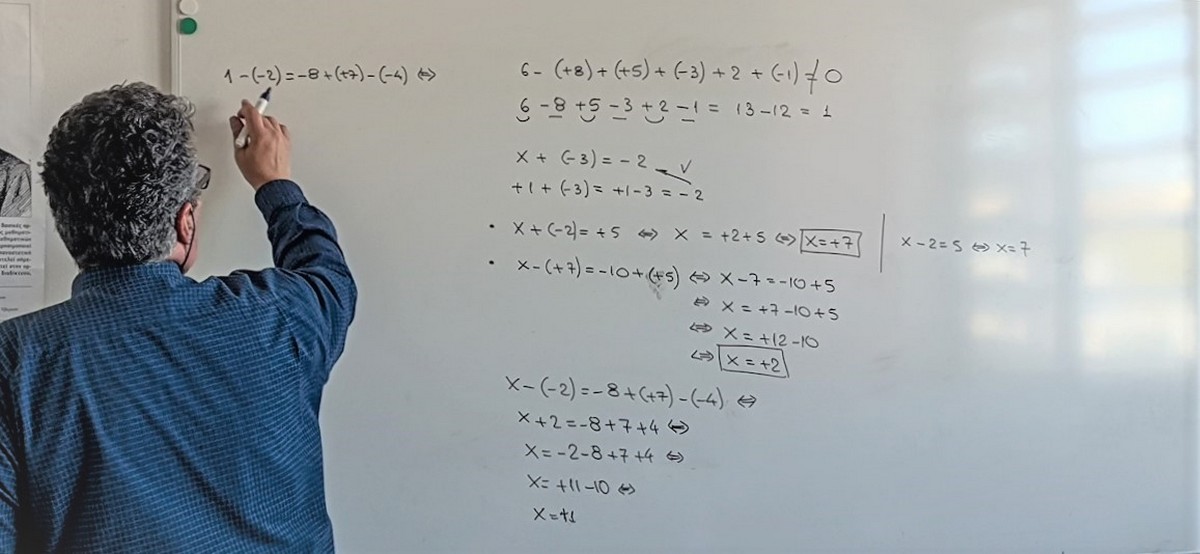 1 - (-2) = -8 + (+7) - (-4) ⇔
6 - (+8) + (+5) + (-3) + 2 + (-1) ≠ 0
6 - 8 + 5 - 3 + 2 - 1 = 13 - 12 = 1
x + (-3) = -2 ✓
+1 + (-3) = +1 - 3 = -2
• x + (-2) = +5 ⇔ x = +2 + 5 ⇔ x = +7 | x - 2 = 5 ⇔ x = 7
• x - (+7) = -10 + (+5) ⇔ x - 7 = -10 + 5
⇔ x = +7 - 10 + 5
⇔ x = +12 - 10
⇔ x = +2
x - (-2) = -8 + (+7) - (-4) ⇔
x + 2 = -8 + 7 + 4 ⇔
x = -2 - 8 + 7 + 4 ⇔
x = +11 - 10 ⇔
x = +1